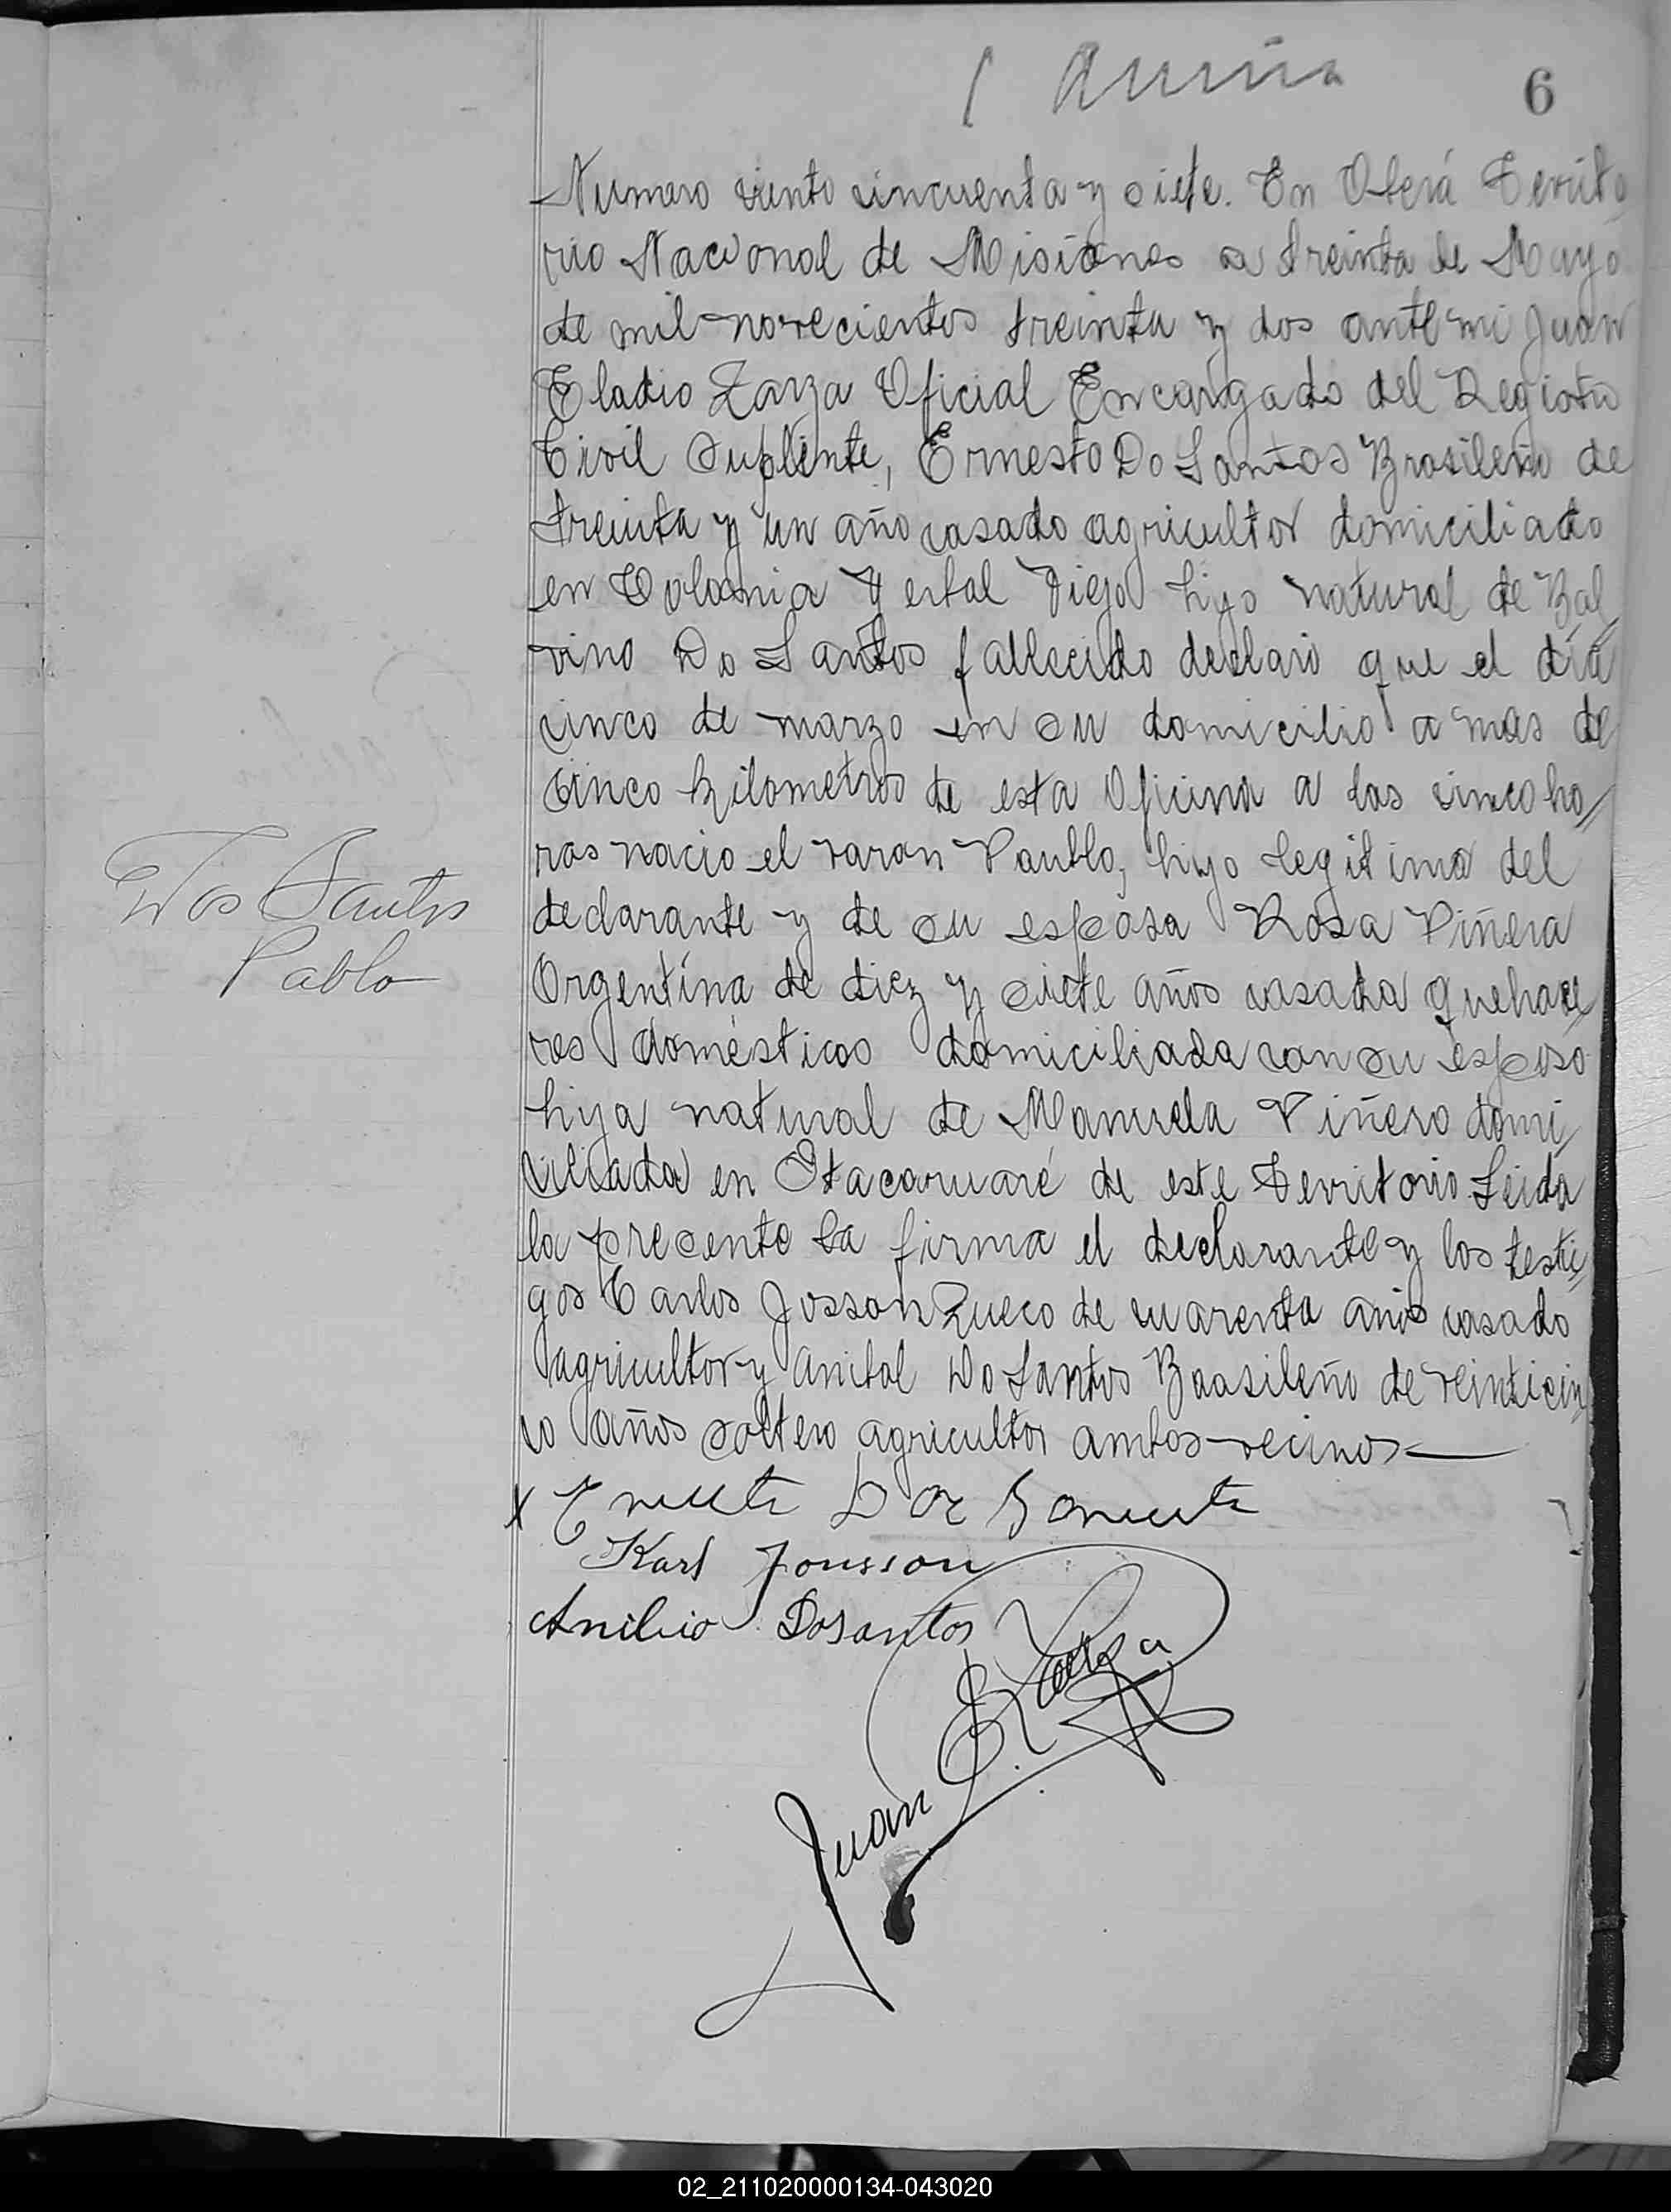 6
Numero ciento cincuenta y siete. En Oberá Territo
rio Nacional de Misiones a treinta de Mayo
de mil novecientos treinta y dos ante mi Juan
Eladio Zarza Oficial Encargado del Registro
Civil Suplente, Ernesto Do Santos Brasileño de
treinta y un año casado agricultor domiciliado
en Colonia Yerbal Viejo hijo natural de Bal
vino Do Santos fallecido declaro que el día
cinco de marzo en su domicilio a mas de
cinco kilometros de esta Oficina a las cinco ho
ras nacio el varon Paublo, hijo legitimo del
Dos Santos
Pablo
declarante y de su esposa Rosa Piñera
Argentína de diez y siete años casada quehace
res domésticos domiciliada con su esposo
hija natural de Manuela Piñero domi
ciliada en Itacaruaré de este Territorio Leida
la precente la firma el declarante y los testi
gos Carlos Josson Zueco de cuarenta años casado
agricultor y Anibal Do Santos Braasileño de veinticin
co años soltero agricultor ambos vecinos
x Do
Karl Jonsson
Anibio Dosantos
Juan E Zarza
02_211020000134-043020